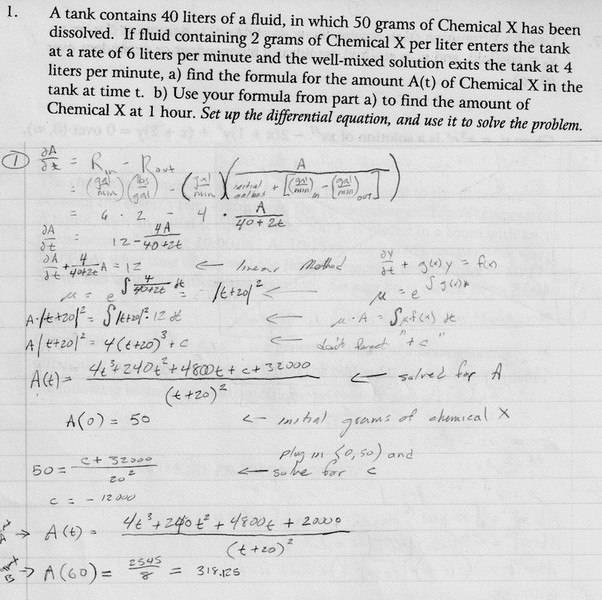 1. A tank contains 40 liters of a fluid, in which 50 grams of Chemical X has been
dissolved. If fluid containing 2 grams of Chemical X per liter enters the tank
at a rate of 6 liters per minute and the well-mixed solution exits the tank at 4
liters per minute, a) find the formula for the amount A(t) of Chemical X in the
tank at time t. b) Use your formula from part a) to find the amount of
Chemical X at 1 hour. Set up the differential equation, and use it to solve the problem.
① ∂A/∂t = R_in - R_out
= (gal/min)(lbs/gal) - (gal/min)(A / initial gallons + [(gal/min)_in - (gal/min)_out])
= 6 · 2 - 4 · A/40+2t
∂A/∂t = 12 - 4A/40+2t
∂A/∂t + 4/40+2t A = 12 ← linear Method ∂y/∂t + g(x)y = f(x)
μ = e^∫ 4/40+2t dt = |t+20|² ← μ = e^∫g(x)dx
A·|t+20|² = ∫|t+20|²·12 dt ← μ·A = ∫μf(x) dt
A|t+20|² = 4(t+20)³ + c ← don't forget "+c"
A(t) = 4t³+240t²+4800t+c+32000 / (t+20)² ← solved for A
A(0) = 50 ← initial grams of chemical X
50 = c+32000 / 20² ← plug in (0,50) and solve for c
c = -12000
→ A(t) = 4t³+240t²+4800t+20000 / (t+20)²
→ A(60) = 2545/8 = 318.125